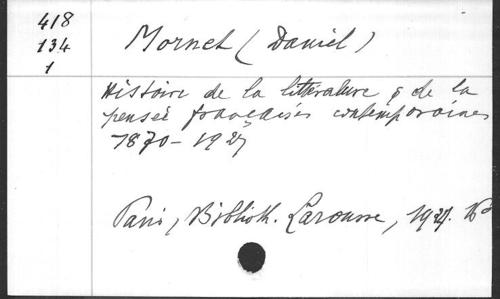 418
134
1
Mornet (Daniel)
Histoire de la littérature & de la
pensée françaises contemporaines
1870-1927
Paris, Biblioth. Larousse, 1927.